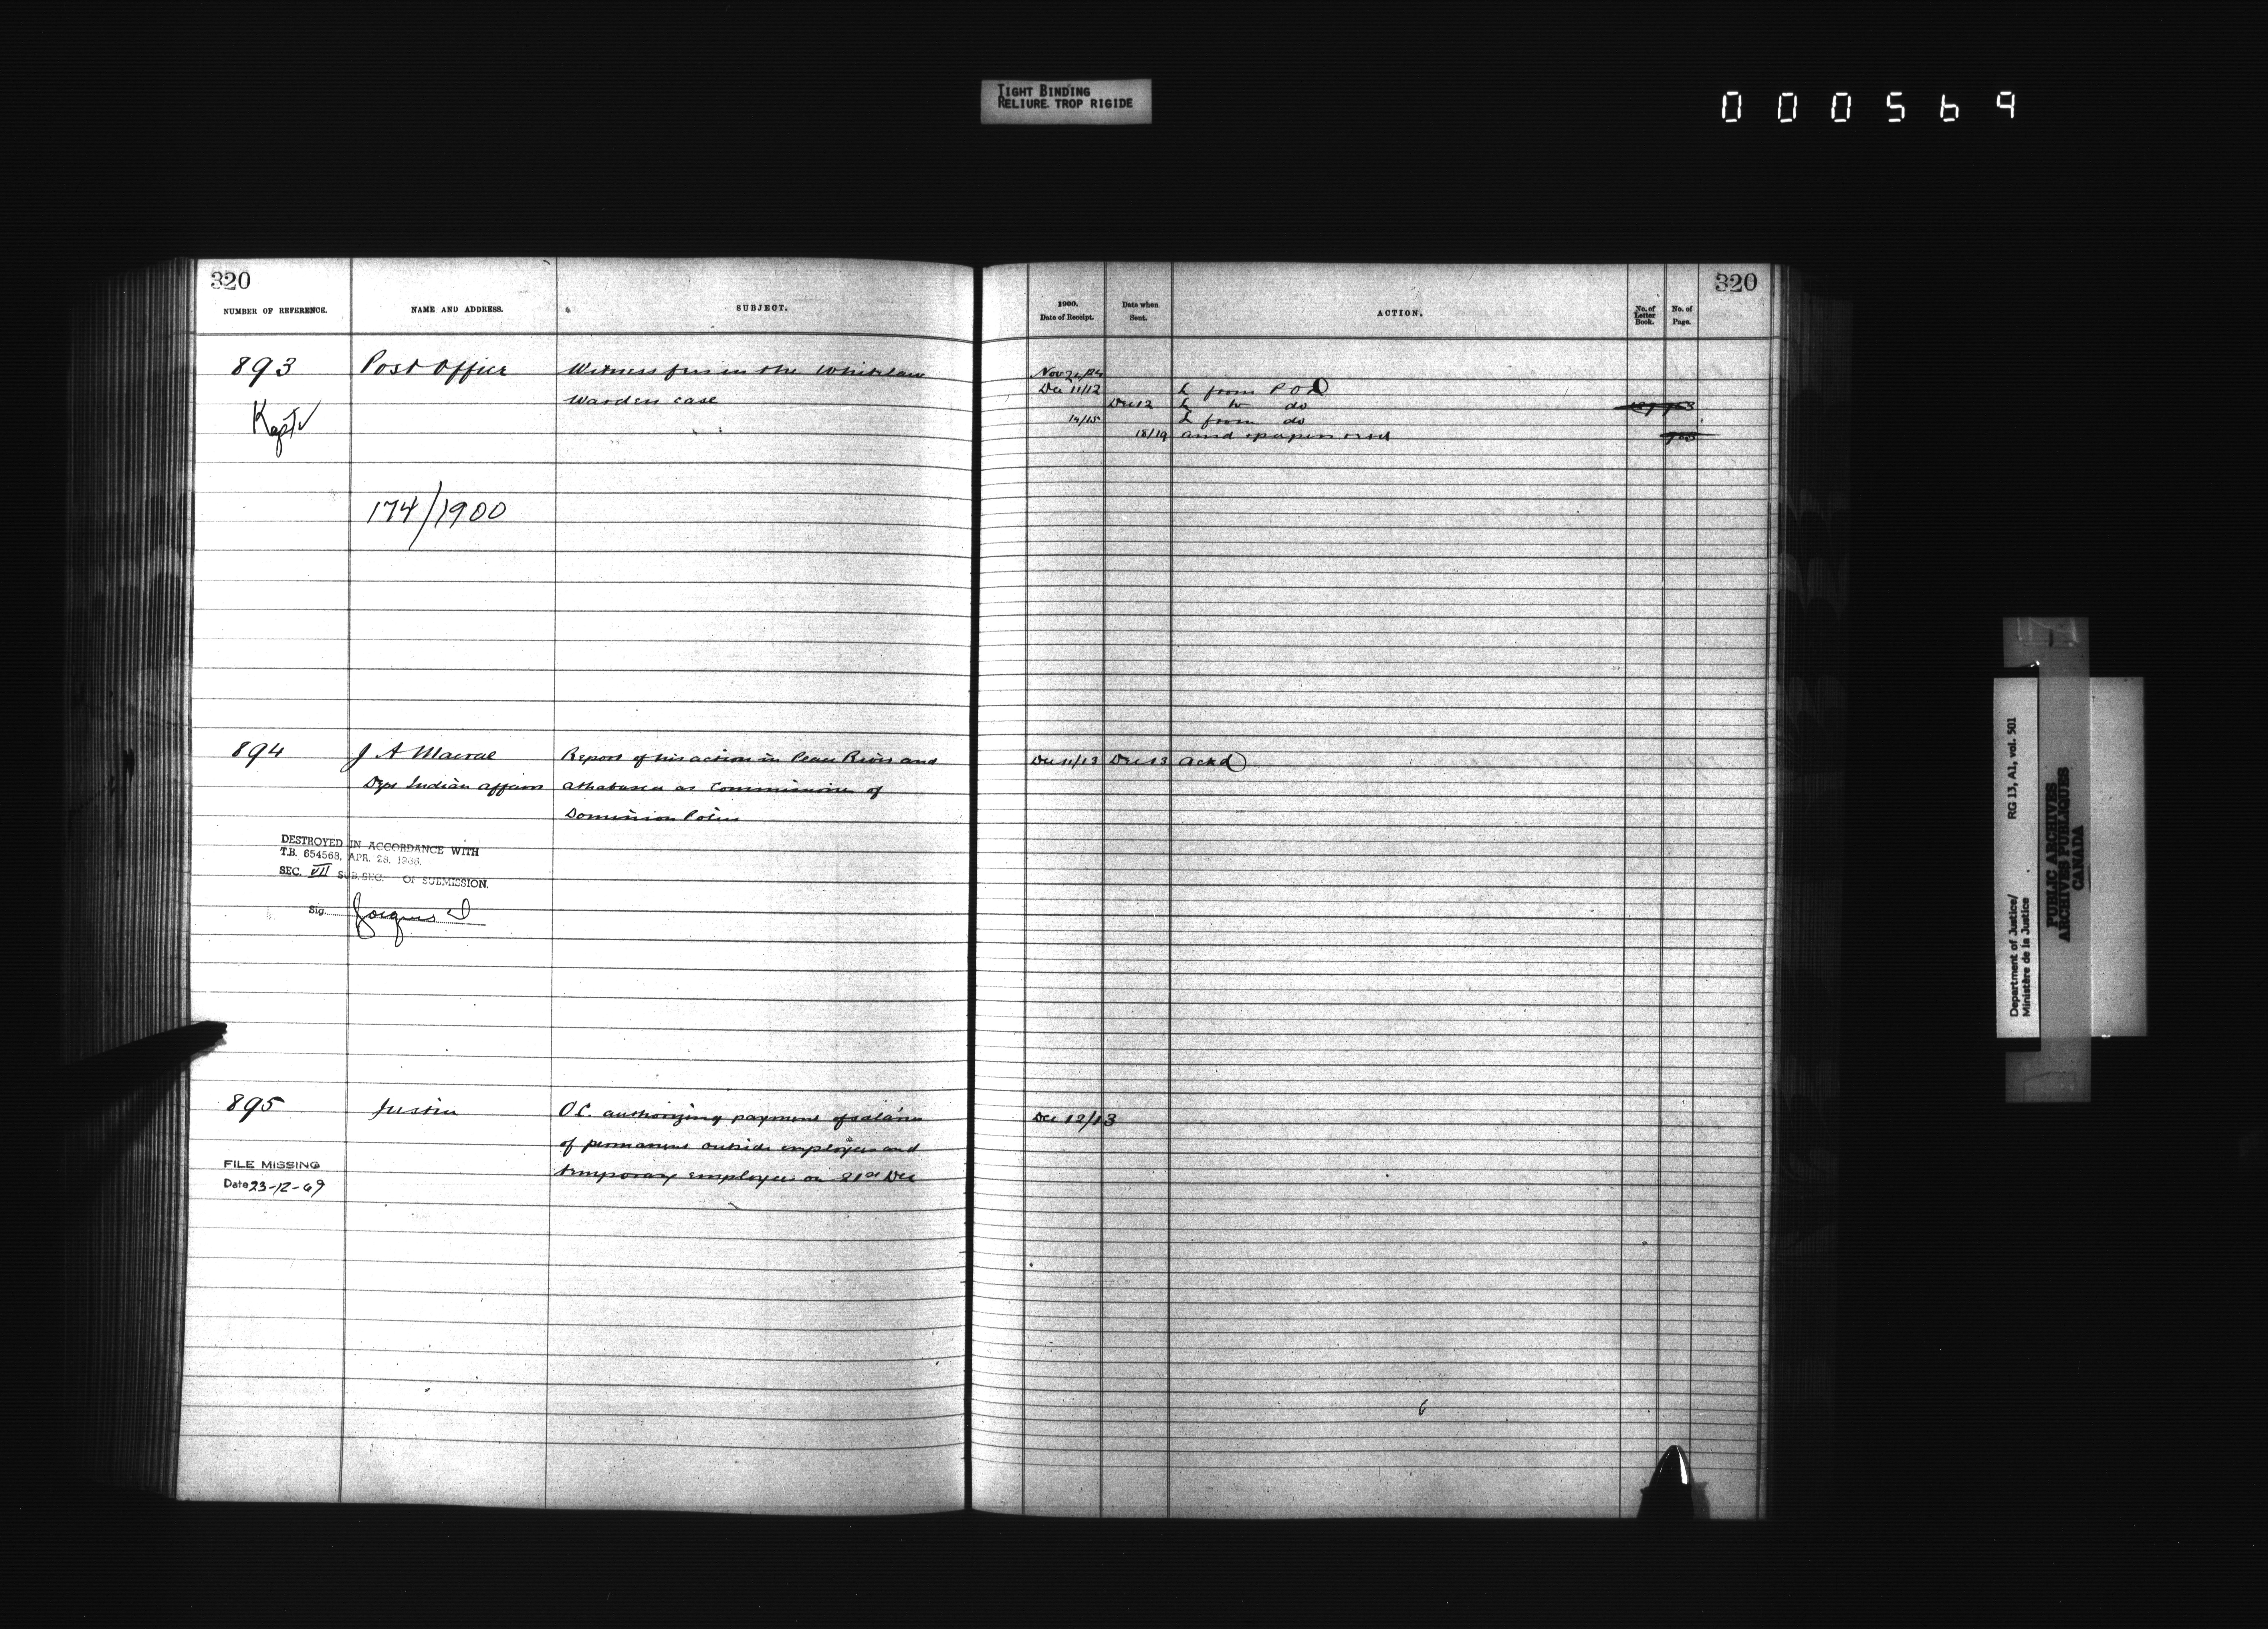 TIGHT BINDING
RELIURE TROP RIGIDE
000569
320
NUMBER OF REFERENCE.
NAME AND ADDRESS.
SUBJECT.
893
Post Office
Witness fees in the Whitelaw
Warden case
Kept
174/1900
894
J A Macrae
Report of his action in Peace River and
Dept Indian Affairs
Athabasca as Commissioner of
Dominion Police
DESTROYED IN ACCORDANCE WITH
T.B. 654568, APR. 28, 1966.
SEC. VII SUB. SEC. OF SUBMISSION.
Sig.
895
Justice
O.C. authorizing payment of salaries
of permanent outside employees and
temporary employees on 21st Dec
FILE MISSING
Date 23-12-69
320
1900.
Date of Receipt.
Date when
Sent.
ACTION.
No. of
Letter
Book.
No. of
Page.
Dec 11/12
L from P O D
Dec 12
L to do
14/15
L from do
18/19
Dec 11/13
Dec 13
Ackd
Dec 12/13
Department of Justice/
Ministère de la Justice
RG 13, A1, vol. 501
PUBLIC ARCHIVES
ARCHIVES PUBLIQUES
CANADA